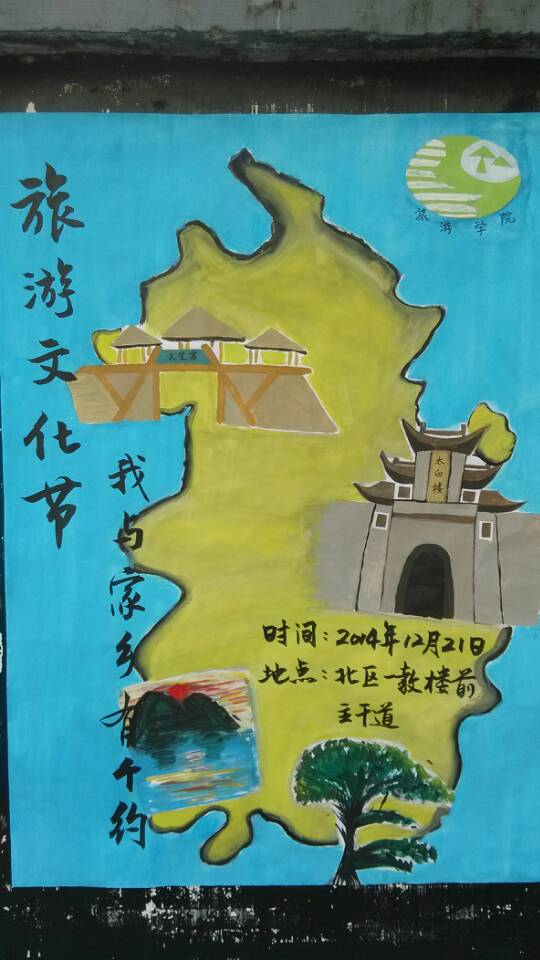 旅游文化节
我与家乡有个约
旅游学院
太白楼
时间：2014年12月21日
地点：北区一教楼前
主干道